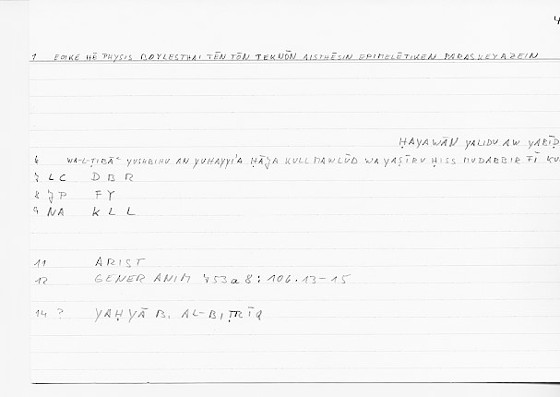 4
1 EOIKE HĒ PHYSIS BOYLESTHAI TĒN TŌN TEKNŌN AISTHĒSIN EPIMELĒTIKEN PARASKEYAZEIN
ḤAYAWĀN YALIDU AW YABĪḌ
6 WA-L-ṬIBĀʿ YUSHBIHU AN YUHAYYIʾA ḤĀJA KULL MAWLŪD WA YAṢĪRU ḤISS MUDABBIR FĪ KU
7 LC D B R
8 JP F Y
9 NA K L L
11 ARIST
12 GENER ANIM 753a8: 106.13-15
14 ? YAḤYĀ B. AL-BIṬRĪQ